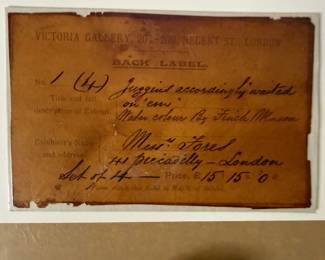 VICTORIA GALLERY, REGENT ST. LONDON
BACK LABEL.
No. 1 (4) Juggins accordingly "waited
Title and full
description of Exhibit. on 'em"
Water colour By Finch Mason
Exhibitor's Name
and address. Messrs Fores
41 Piccadilly - London
Set of 4 — Price, £ 15 15 0